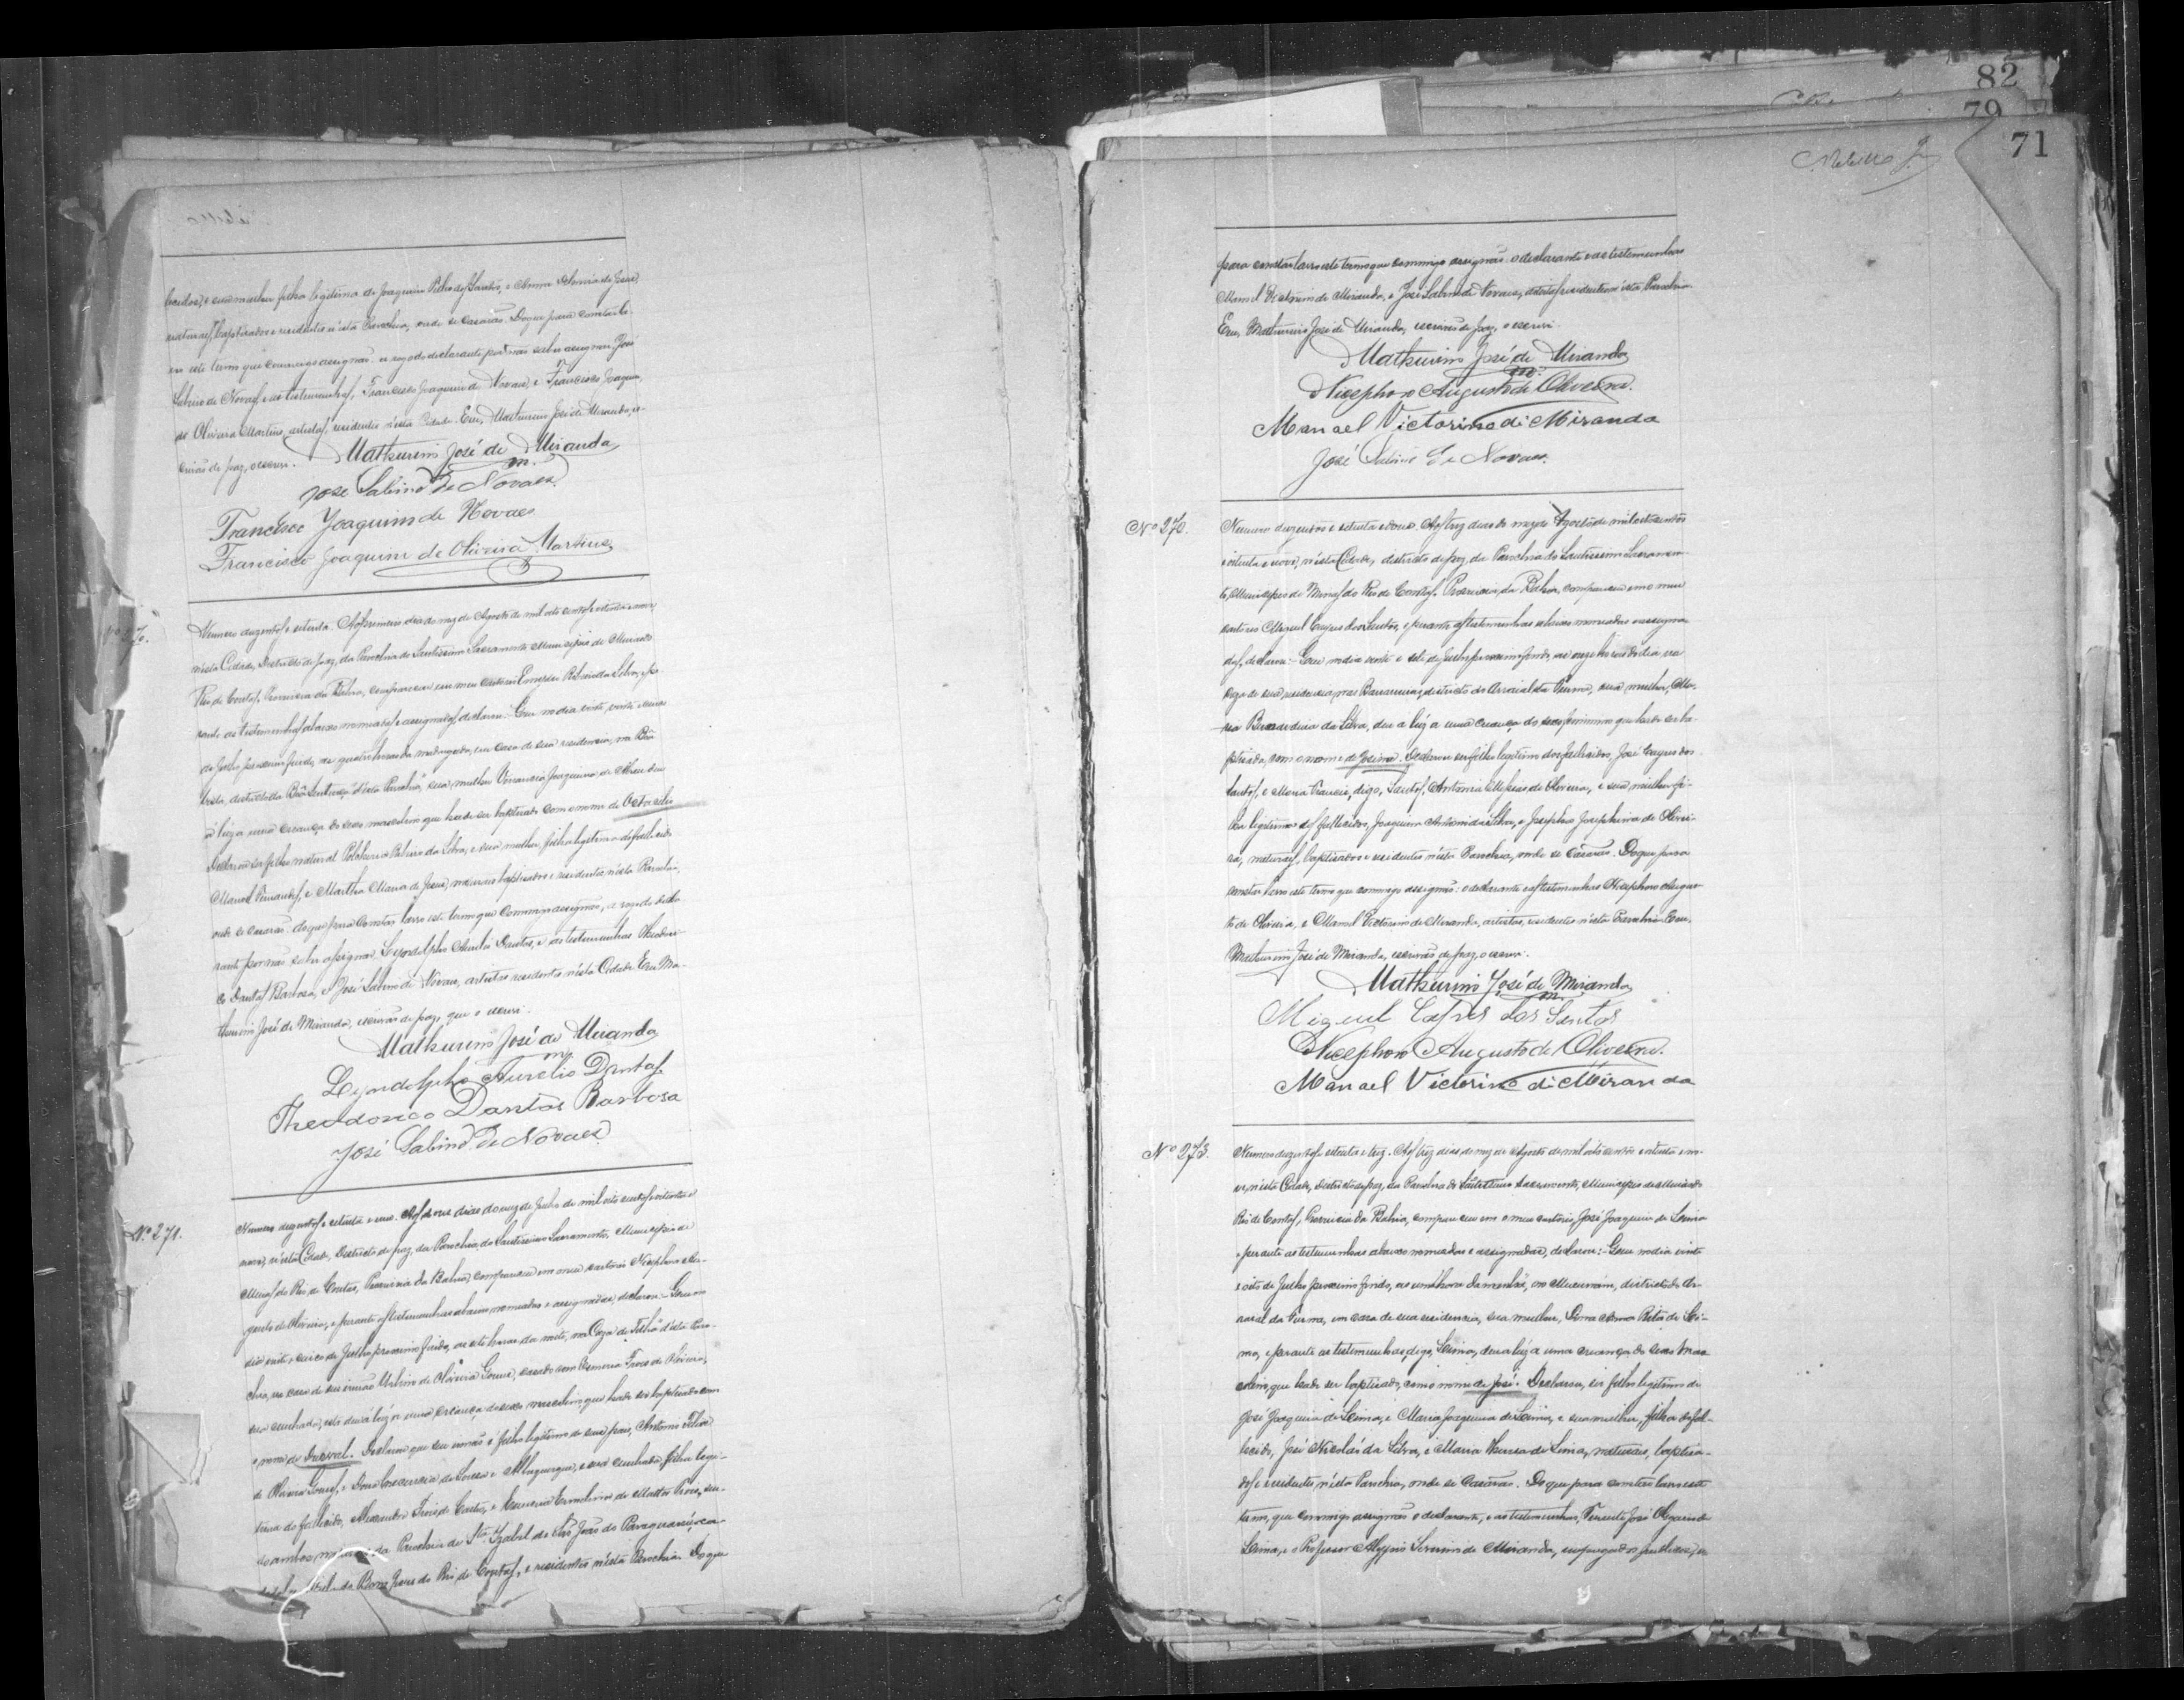 lecidos, e sua mulher filha legitima de Joaquim Pedro dos Santos, e Anna Maria de Jesus,
naturaes, baptisados e residentes n'esta Parochia, onde se casarão. Do que para constar la-
vro este termo que commigo assignão: a rogo do declarante por não saber assignar, José
Sabino de Novaes, e as testemunhas, Francisco Joaquim de Novaes, e Francisco Joaquim
de Oliveira Martins, artistas, residentes n'esta Cidade. Eu, Mathurino José de Miranda, es-
crivão de paz, o escrevi.
Mathurino José de Miranda
José Sabino de Novaes
Francisco Joaquim de Novaes
Francisco Joaquim de Oliveira Martins
Nº 270.
Numero duzentos e setenta. Ao primeiro dia do mez de Agosto de mil oito centos e oitenta e nove,
nesta Cidade, Districto de paz, da Parochia do Santissimo Sacramento, Municipio de Minas do
Rio de Contas, Provincia da Bahia, compareceu em meu cartorio Ribeiro da Silva, e pe-
rante as testemunhas abaixo nomeadas e assignadas, declarou: Que no dia vinte
de Julho proximo findo, as quatro horas da madrugada, em casa de sua residencia, na Bôa
Vista, districto da Bôa Sentença d'esta Parochia, sua mulher Joaquina de deu
a luz a uma creança do sexo masculino que hade ser baptisado com o nome de
Declarou ser filho natural Ribeiro da Silva, e sua mulher filha legitima dos fallecidos
Manoel Fernandes, e Martha Maria de Jesus, naturaes baptisados e residentes n'esta Parochia,
onde se casarão. Do que para constar lavro este termo que commigo assignão, a rogo do decla-
rante por não saber assignar, Lyndolpho Aurelio Dantas, e as testemunhas Theodori-
co Dantas Barbosa, e José Sabino de Novaes, artistas residentes n'esta Cidade. Eu Ma-
thurino José de Miranda, escrivão de paz, que o escrevi.
Mathurino José de Miranda
Lyndolpho Aurelio Dantas
Theodorico Dantas Barbosa
José Sabino de Novaes
Nº 271.
Numero duzentos e setenta e um. Aos dous dias do mez de Julho de mil oito centos e oitenta e
nove, n'esta Cidade, Districto de paz, da Parochia do Santissimo Sacramento, Municipio de
Minas do Rio de Contas, Provincia da Bahia, compareceu em meu cartorio Nicephoro Au-
gusto de Oliveira, e perante as testemunhas abaixo nomeadas e assignadas, declarou: Que no
dia vinte e cinco de Julho proximo findo, as sete horas da noite, na d'esta Paro-
chia, em casa de seu irmão de Oliveira Gomes, casado com Froes de Oliveira,
sua cunhada, esta deu a luz a uma creança do sexo masculino, que hade ser baptisado com
o nome de Durval. Declarou que seu irmão é filho legitimo de seus paes, Antonio
de Oliveira Gomes, e Dona de Souza e Albuquerque, e sua cunhada, filha legi-
tima do fallecido, Alexandre Froes de Castro, e de Mattos Froes, sen-
do ambos naturaes da Parochia de Sta. Izabel de São João do Paraguassú,
do Rio de Contas, e residentes n'esta Parochia. Do que
82
79
71
Rebello J.
para constar lavro este termo que commigo assignão: o declarante e as testemunhas
Manoel Victorino de Miranda, e José Sabino de Novaes, artistas residentes n'esta Parochia.
Eu, Mathurino José de Miranda, escrivão de paz, o escrevi.
Mathurino José de Miranda
Nicephoro Augusto de Oliveira.
Manoel Victorino de Miranda
José Sabino de Novaes.
Nº 272.
Numero duzentos e setenta e dous. Aos trez dias do mez de Agosto de mil oito centos
e oitenta e nove, n'esta Cidade, districto de paz, da Parochia do Santissimo Sacramen-
to, Municipio de Minas do Rio de Contas, Provincia da Bahia, compareceu em o meu
cartorio Miguel Cayres dos Santos, e perante as testemunhas abaixo nomeadas e assigna-
das, declarou: Que no dia vinte e sete de Julho proximo findo, as onze horas do dia na
caza de sua residencia, nas Barreiras, districto do Arraial da Furna, sua mulher, Ma-
ria da Silva, deu a luz a uma creança do sexo feminino que hade ser ba-
ptisada, com o nome de Jozina. Declarou ser filho legitimo dos fallecidos, José Cayres dos
Santos, e Maria Francis, digo, Santos, Antonia de Oliveira, e sua mulher fi-
lha legitima dos fallecidos, Joaquim Antonio da Silva, e Josepha Josephina de Olivei-
ra, naturaes, baptisados e residentes n'esta Parochia, onde se casarão. Do que para
constar lavro este termo que commigo assignão: o declarante e as testemunhas Nicephoro Augus-
to de Oliveira, e Manoel Victorino de Miranda, artistas, residentes n'esta Parochia. Eu,
Mathurino José de Miranda, escrivão de paz, o escrevi.
Mathurino José de Miranda
Miguel Cayres dos Santos
Nicephoro Augusto de Oliveira.
Manoel Victorino de Miranda
Nº 273.
Numero duzentos e setenta e trez. Aos trez dias do mez de Agosto de mil oito centos e oitenta e no-
ve, n'esta Cidade, Districto de paz, da Parochia do Santissimo Sacramento, Municipio de Minas do
Rio de Contas, Provincia da Bahia, compareceu em o meu cartorio José Joaquim de Lima
e perante as testemunhas abaixo nomeadas e assignadas, declarou: - Que no dia vinte
e oito de Julho proximo findo, as uma hora da manhã, no districto do Ar-
raial da Furna, em casa de sua residencia, sua mulher, Dona Anna Rita de Li-
ma, e perante as testemunhas, digo, Lima, deu a luz a uma creança do sexo mas-
culino, que hade ser baptisado, com o nome de José. Declarou, ser filho legitimo de
José Joaquim de Lima, e Maria Joaquina de Lima, e sua mulher, filha do fal-
lecido, José Nicolaó da Silva, e Maria Thereza de Lima, naturaes, baptisa-
dos e residentes n'esta Parochia, onde se casarão. Do que para constar lavro este
termo, que commigo assignão o declarante, e as testemunhas, Tenente José Olegario de
Lima, e o Professor Alypio Severino de Miranda, empregados publicos, e